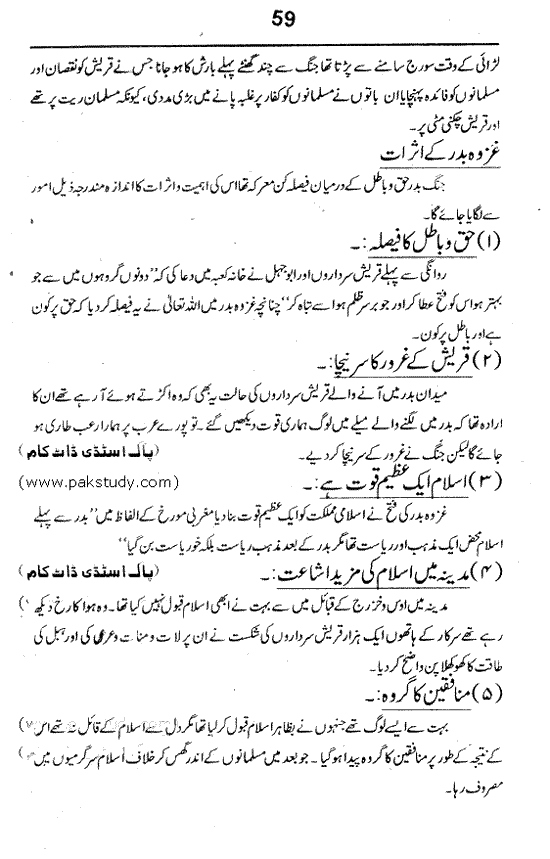 59
لڑائی کے وقت سورج سامنے سے پڑتا تھا جنگ سے چند گھنٹے پہلے بارش کا ہو جانا جس نے قریش کو نقصان اور
مسلمانوں کو فائدہ پہنچایا ان باتوں نے مسلمانوں کو کفار پر غلبہ پانے میں بڑی مدد دی، کیونکہ مسلمان ریت پر تھے
اور قریش چکنی مٹی پر۔
غزوہ بدر کے اثرات
جنگ بدر حق و باطل کے درمیان فیصلہ کن معرکہ تھا اس کی اہمیت و اثرات کا اندازہ مندرجہ ذیل امور
سے لگایا جائے گا۔
(۱) حق و باطل کا فیصلہ:۔
روانگی سے پہلے قریش سرداروں اور ابوجہل نے خانہ کعبہ میں دعا کی کہ ’’دونوں گروہوں میں سے جو
بہتر ہو اس کو فتح عطا کر اور جو برسر ظلم ہو اسے تباہ کر‘‘ چنانچہ غزوہ بدر میں اللہ تعالیٰ نے یہ فیصلہ کر دیا کہ حق پر کون
ہے اور باطل پر کون۔
(۲) قریش کے غرور کا سر نیچا:۔
میدان بدر میں آنے والے قریش سرداروں کی حالت یہ تھی کہ وہ اکڑتے ہوئے آ رہے تھے ان کا
ارادہ تھا کہ بدر میں لگنے والے میلے میں لوگ ہماری قوت دیکھیں گے۔ تو پورے عرب پر ہمارا رعب طاری ہو
جائے گا لیکن جنگ نے غرور کے سر نیچا کر دیے۔ (پاک اسٹڈی ڈاٹ کام)
(۳) اسلام ایک عظیم قوت ہے:۔ (www.pakstudy.com)
غزوہ بدر کی فتح نے اسلامی مملکت کو ایک عظیم قوت بنا دیا مغربی مورخ کے الفاظ میں ’’بدر سے پہلے
اسلام محض ایک مذہب اور ریاست تھا مگر بدر کے بعد مذہب ریاست بلکہ خود ریاست بن گیا‘‘
(۴) مدینہ میں اسلام کی مزید اشاعت:۔ (پاک اسٹڈی ڈاٹ کام)
مدینہ میں اوس و خزرج کے قبائل میں سے بہت نے ابھی اسلام قبول نہیں کیا تھا۔ وہ ہوا کا رخ دیکھ
رہے تھے سرکار کے ہاتھوں ایک ہزار قریش سرداروں کی شکست نے ان پر لات و منات و عزیٰ کی اور ہبل کی
طاقت کا کھوکھلا پن واضح کر دیا۔
(۵) منافقین کا گروہ:۔
بہت سے ایسے لوگ تھے جنہوں نے بظاہر اسلام قبول کر لیا تھا مگر دل سے اسلام کے قائل نہ تھے اس
کے نتیجہ کے طور پر منافقین کا گروہ پیدا ہو گیا۔ جو بعد میں مسلمانوں کے اندر گھس کر خلاف اسلام سرگرمیوں میں
مصروف رہا۔